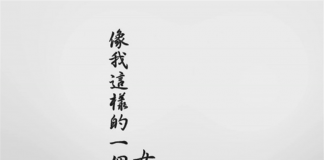 像我這樣的一個
女